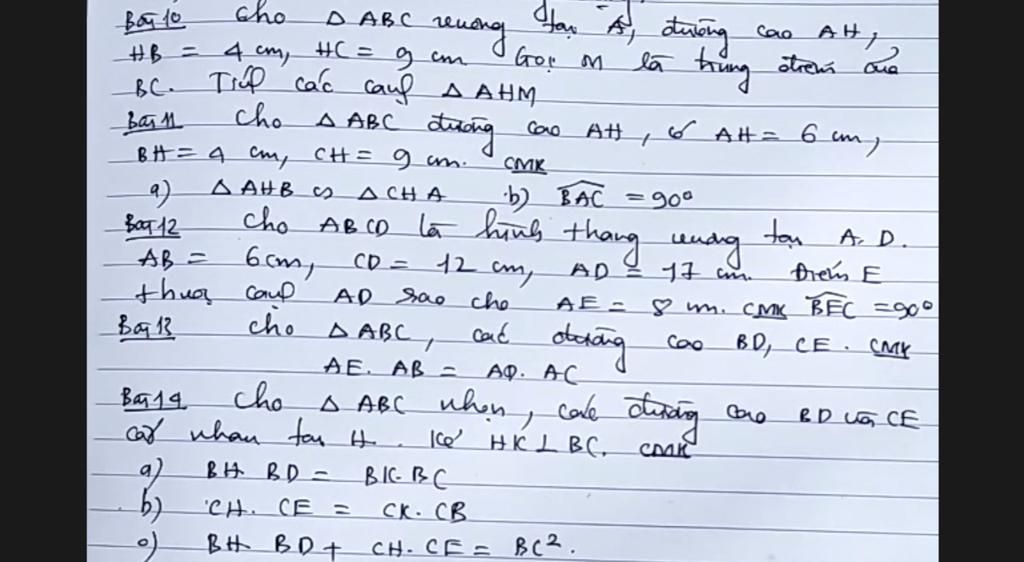 Bài 10 Cho Δ ABC vuông tại A, đường cao AH,
HB = 4 cm, HC = 9 cm Gọi M là trung điểm của
BC. Tính các cạnh Δ AHM
Bài 11 Cho Δ ABC đường cao AH, có AH = 6 cm,
BH = 4 cm, CH = 9 cm. CMR
a) Δ AHB ∽ Δ CHA b) \widehat{BAC} = 90°
Bài 12 Cho ABCD là hình thang vuông tại A, D.
AB = 6cm, CD = 12 cm, AD = 17 cm. Điểm E
thuộc cạnh AD sao cho AE = 8 cm. CMR \widehat{BEC} = 90°
Bài 13 Cho Δ ABC, các đường cao BD, CE. CMR
AE. AB = AD. AC
Bài 14 Cho Δ ABC nhọn, các đường cao BD và CE
cắt nhau tại H. Kẻ HK ⊥ BC. CMR
a) BH. BD = BK. BC
b) CH. CE = CK. CB
c) BH. BD + CH. CE = BC².